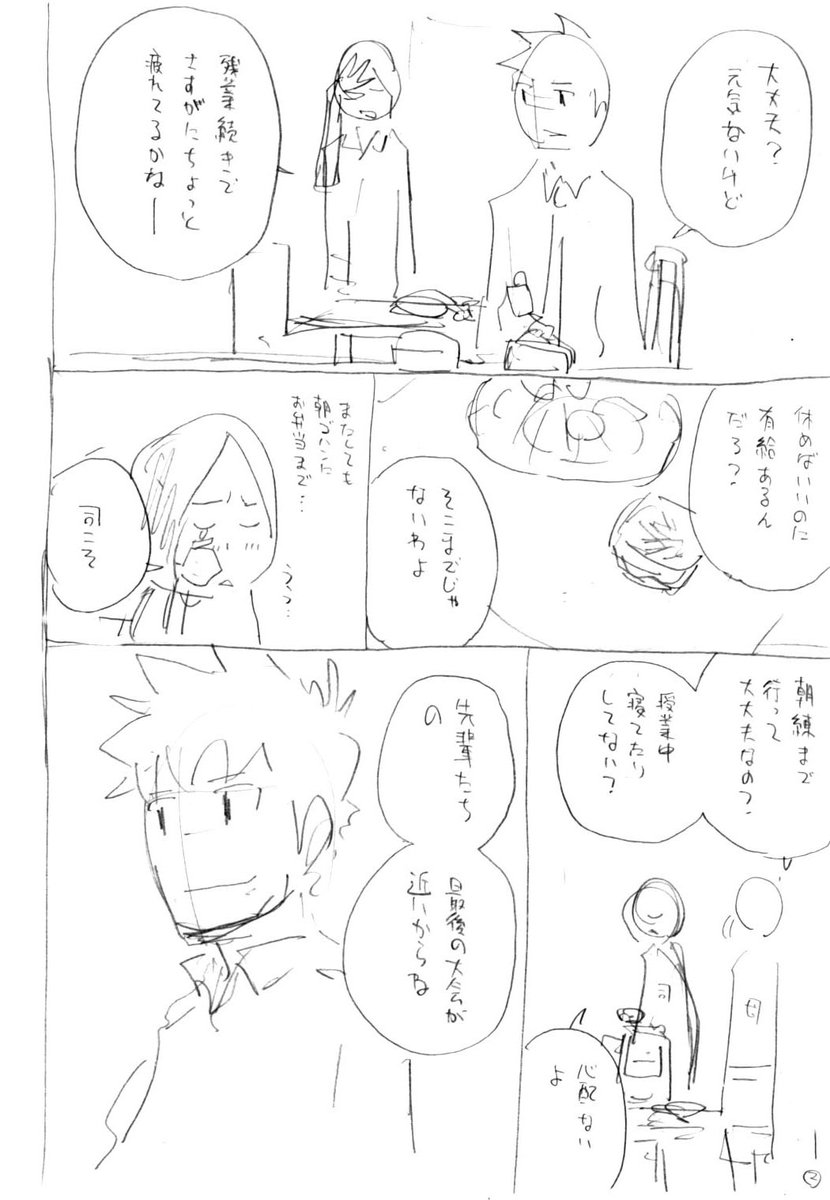 大丈夫?
元気ないけど
残業続きで
さすがにちょっと
疲れてるかなー
休めばいいのに
有給あるん
だろ?
そこまでじゃ
ないわよ
またしても
朝ゴハンに
お弁当まで…
うぅ…
司こそ
朝練まで
行って
大丈夫なの?
授業中
寝てたり
してない?
司
母
心配ない
よ
先輩たち
の
最後の大会が
近いからな
1
②